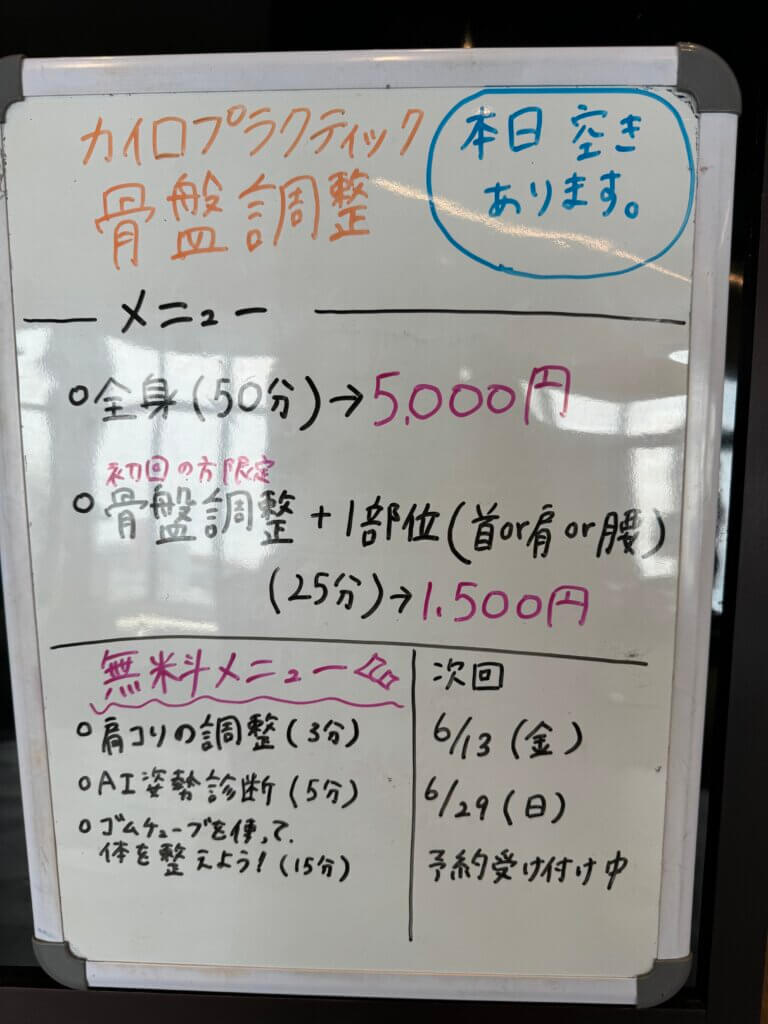 カイロプラクティック
骨盤調整
本日空き
あります。
メニュー
○全身(50分)→5,000円
初回の方限定
○骨盤調整+1部位(首or肩or腰)
(25分)→1.500円
無料メニュー
○肩コリの調整(3分)
○AI姿勢診断(5分)
○ゴムチューブを使って、
体を整えよう!(15分)
次回
6/13(金)
6/29(日)
予約受け付け中